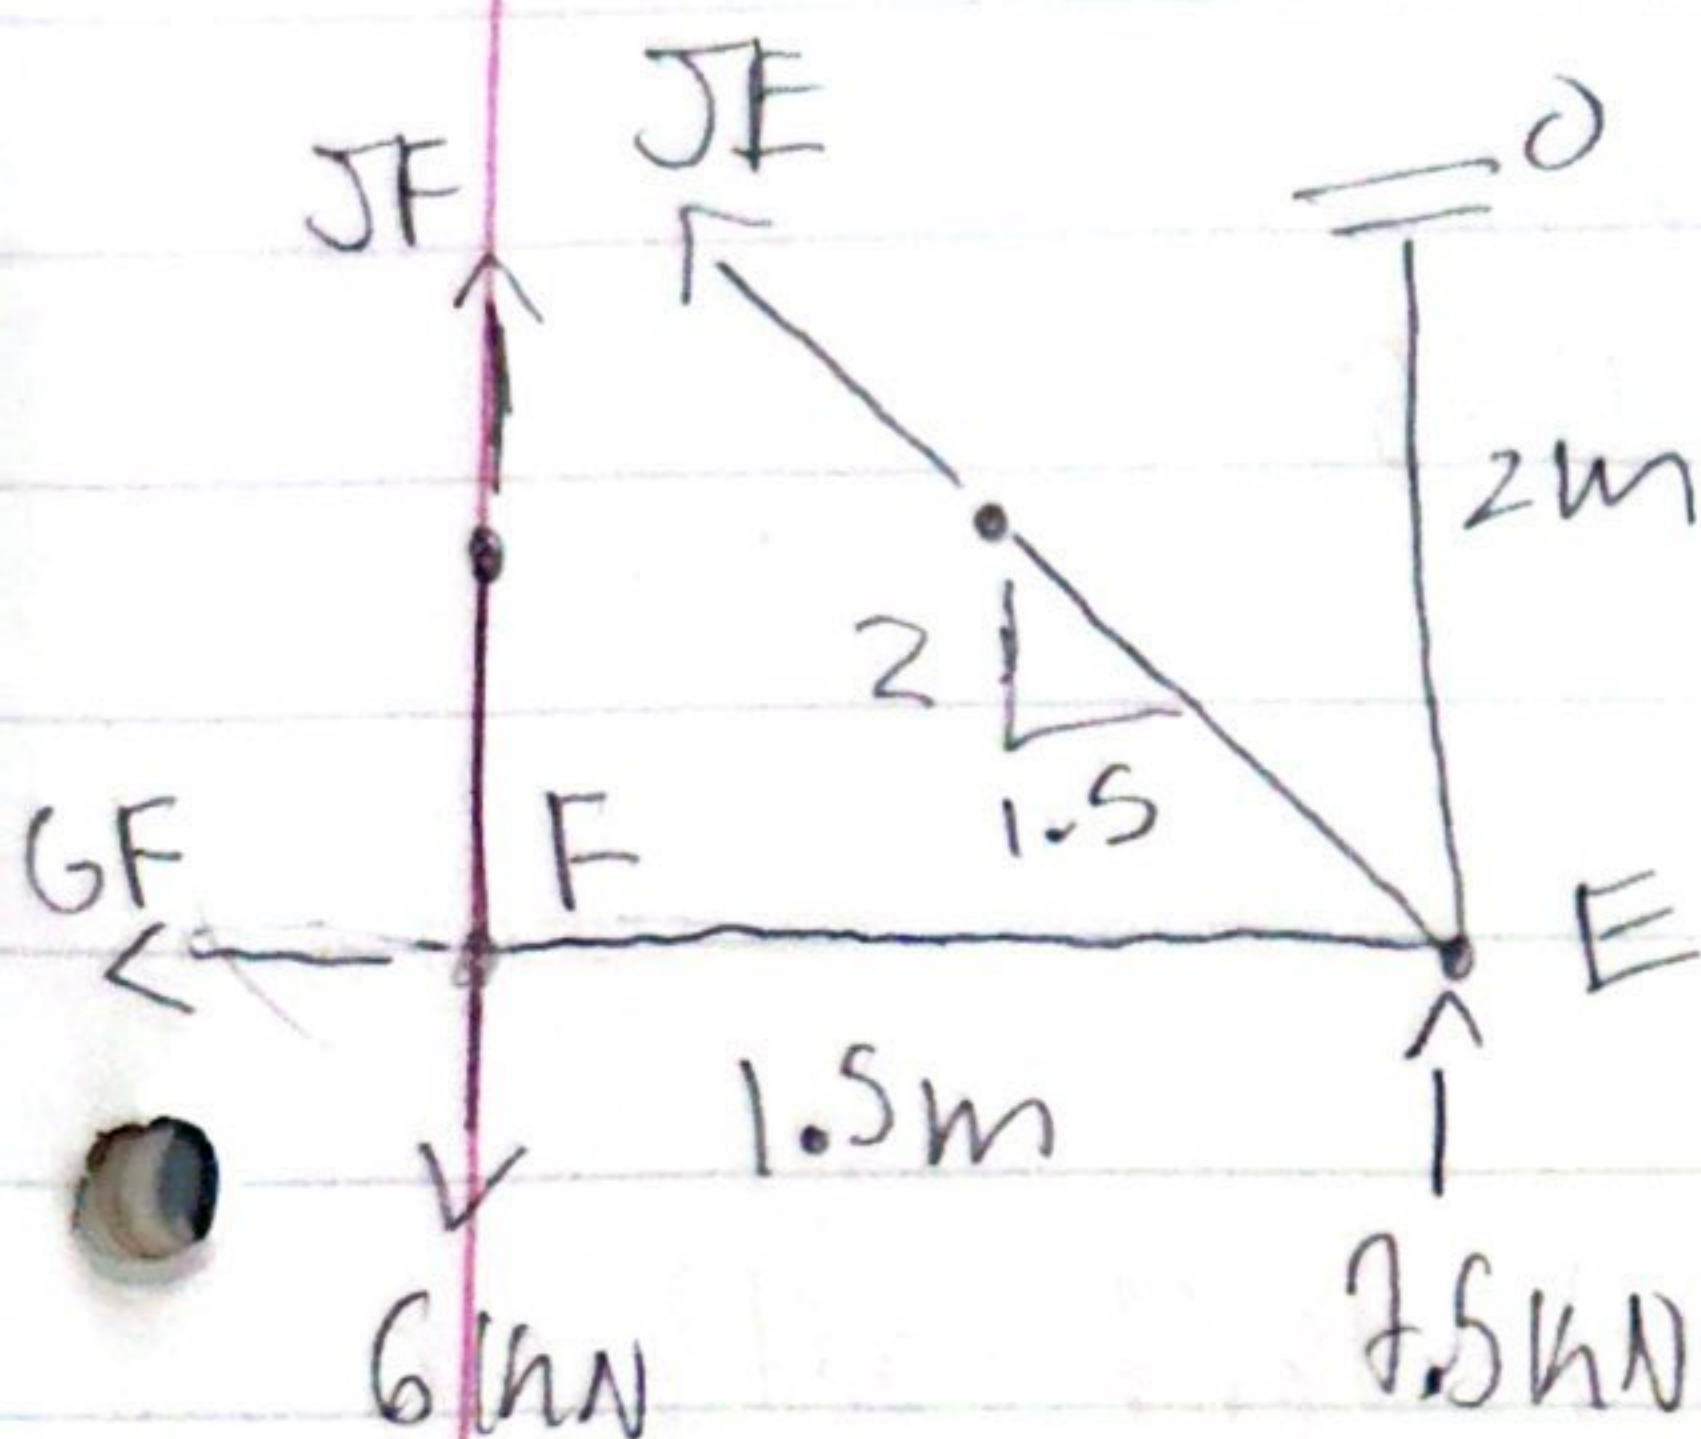 JE
JF
0
2m
2
1.5
GF
F
E
1.5m
6kN
7.5kN